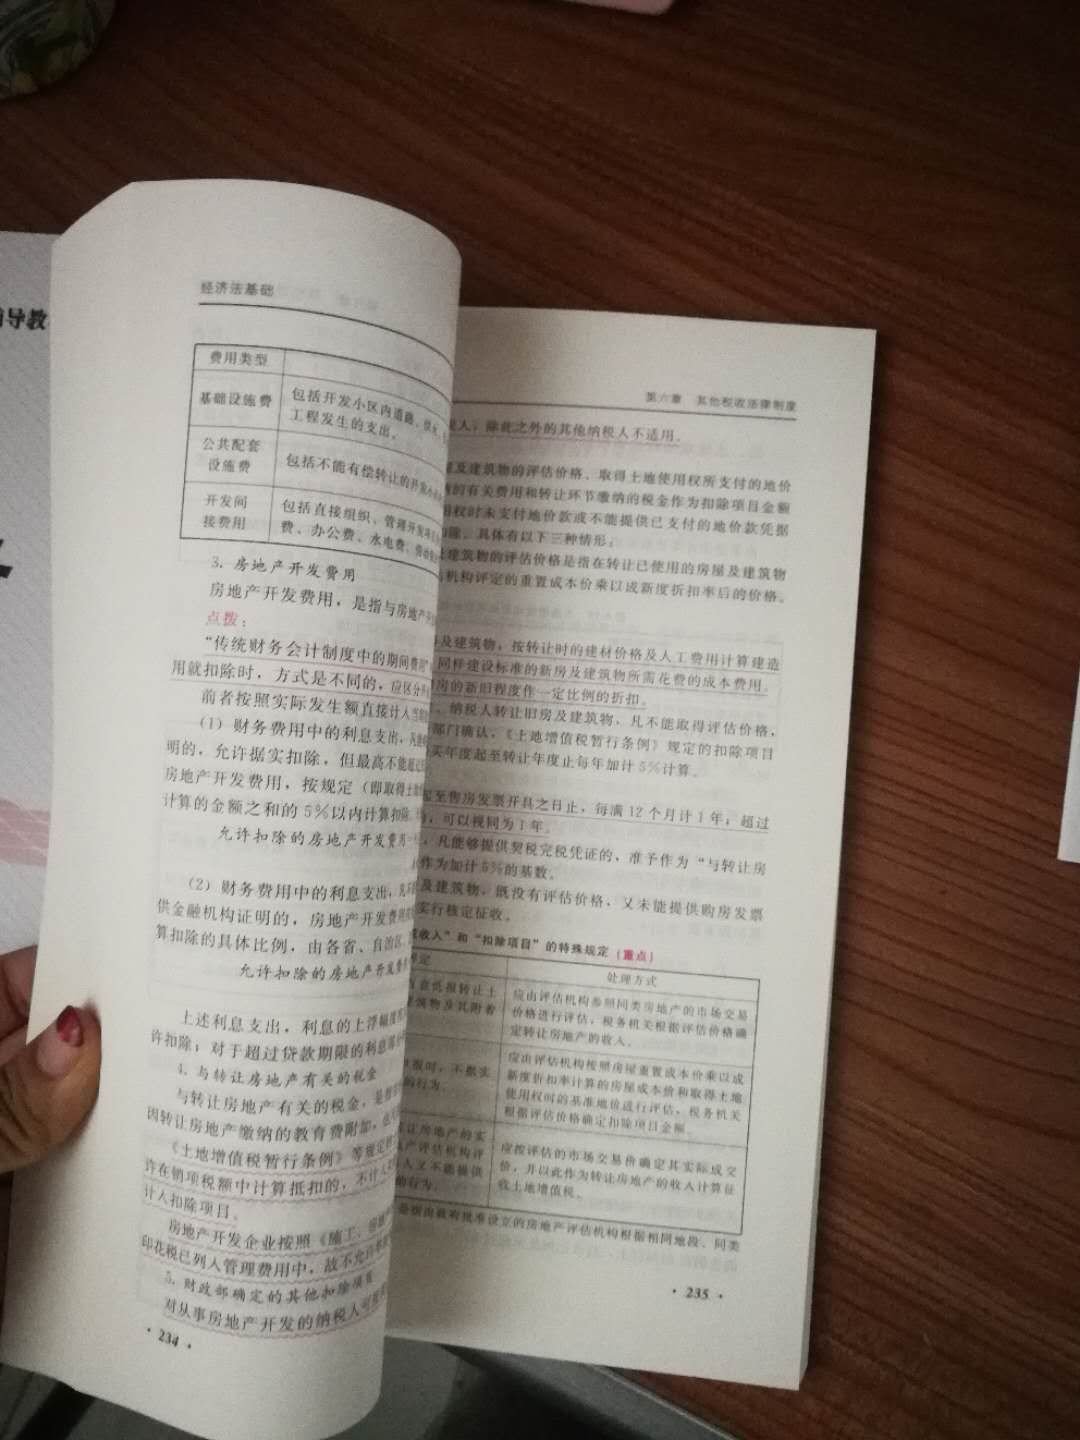 导教
经济法基础
费用类型
基础设施费 包括开发小区内道路、供水、
工程发生的支出。
公共配套
设施费 包括不能有偿转让的开发小
开发间
接费用 包括直接组织、管理开发项
费、办公费、水电费、劳动
3. 房地产开发费用
房地产开发费用,是指与房地产
点拨:
“传统财务会计制度中的期间费用
用就扣除时,方式是不同的,应区分
前者按照实际发生额直接计入当
(1)财务费用中的利息支出,凡
明的,允许据实扣除,但最高不能超过
房地产开发费用,按规定(即取得土
计算的金额之和的5%以内计算扣除
允许扣除的房地产开发费用
(2)财务费用中的利息支出,凡不
供金融机构证明的,房地产开发费用
算扣除的具体比例,由各省、自治区、
允许扣除的房地产开发费
上述利息支出,利息的上浮幅度
许扣除;对于超过贷款期限的利息部
4. 与转让房地产有关的税金
与转让房地产有关的税金,是指
因转让房地产缴纳的教育费附加,也
《土地增值税暂行条例》等规定
许在销项税额中计算抵扣的,不计入
计入扣除项目。
房地产开发企业按照《施工、房地
印花税已列入管理费用中,故不允许
5. 财政部确定的其他扣除项目
对从事房地产开发的纳税人可
· 234 ·
第六章 其他税收法律制度
人,除此之外的其他纳税人不适用。
及建筑物的评估价格、取得土地使用权所支付的地价
的有关费用和转让环节缴纳的税金作为扣除项目金额
用权时未支付地价款或不能提供已支付的地价款凭据
扣除。具体有以下三种情形:
建筑物的评估价格是指在转让已使用的房屋及建筑物
机构评定的重置成本价乘以成新度折扣率后的价格。
及建筑物,按转让时的建材价格及人工费用计算建造
同样建设标准的新房及建筑物所需花费的成本费用。
房的新旧程度作一定比例的折扣。
、纳税人转让旧房及建筑物,凡不能取得评估价格,
部门确认,《土地增值税暂行条例》规定的扣除项目
买年度起至转让年度止每年加计5%计算。
起至售房发票开具之日止,每满12个月计1年;超过
,可以视同为1年。
,凡能够提供契税完税凭证的,准予作为“与转让房
作为加计5%的基数。
及建筑物,既没有评估价格,又未能提供购房发票
实行核定征收。
收入”和“扣除项目”的特殊规定(重点)
定 处理方式
低报转让土
建筑物及其附着 应由评估机构参照同类房地产的市场交易
价格进行评估,税务机关根据评估价格确
定转让房地产的收入。
报时,不据实
的行为。 应由评估机构按照房屋重置成本价乘以成
新度折扣率计算的房屋成本价和取得土地
使用权时的基准地价进行评估,税务机关
根据评估价格确定扣除项目金额。
让房地产的实
产评估机构评
人又不能提供
的行为。 应按评估的市场交易价确定其实际成交
价,并以此作为转让房地产的收入计算征
收土地增值税。
是指由政府批准设立的房地产评估机构根据相同地段、同类
· 235 ·